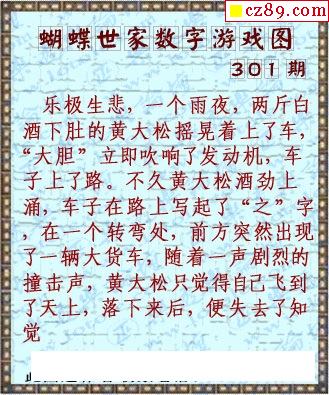 cz89.com
蝴蝶世家数字游戏图
301 期
乐极生悲，一个雨夜，两斤白
酒下肚的黄大松摇晃着上了车，
“大胆”立即吹响了发动机，车
子上了路。不久黄大松酒劲上
涌，车子在路上写起了“之”字
，在一个转弯处，前方突然出现
了一辆大货车，随着一声剧烈的
撞击声，黄大松只觉得自己飞到
了天上，落下来后，便失去了知
觉